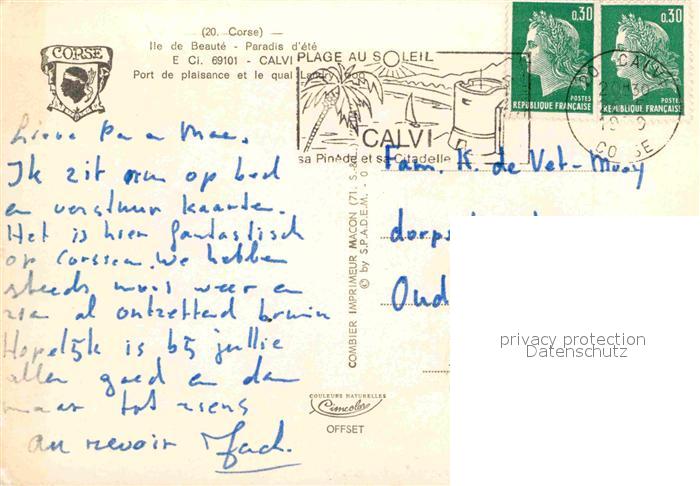 (20. Corse)
Ile de Beauté - Paradis d'été
E Ci. 69101 - CALVI
Port de plaisance et le quai
CORSE
PLAGE AU SOLEIL
CALVI
sa Pinède et sa Citadelle
0,30
POSTES
REPUBLIQUE FRANÇAISE
0,30
POSTES
REPUBLIQUE FRANÇAISE
CALVI
CORSE
Lieve Pa en Moe.
Ik zit nu op bed
en verstuur kaarten.
Het is hier fantastisch
op Corsica. We hebben
steeds mooi weer en
zien al ontzettend bruin
Hopelijk is bij jullie
alles goed en dan
maar tot ziens
au revoir
COMBIER IMPRIMEUR MACON (71. S.-&-L.)
© by S.P.A.D.E.M.
Fam. K. de Vet-Mooy
dorps
Oud
privacy protection
Datenschutz
COULEURS NATURELLES
Cimcolor
OFFSET